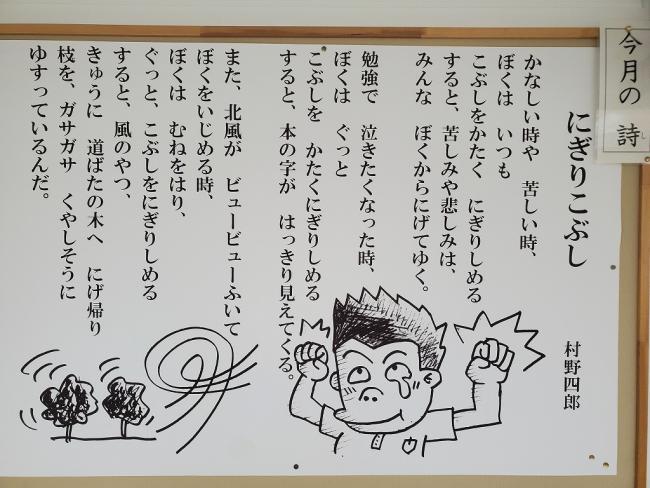 今月の詩
にぎりこぶし
村野四郎
かなしい時や　苦しい時、
ぼくは　いつも
こぶしをかたく　にぎりしめる
すると、苦しみや悲しみは、
みんな　ぼくからにげてゆく。
勉強で　泣きたくなった時、
ぼくは　ぐっと
こぶしを　かたくにぎりしめる
すると、本の字が　はっきり見えてくる。
また、北風が　ビュービューふいて
ぼくをいじめる時、
ぼくは　むねをはり、
ぐっと、こぶしをにぎりしめる
すると、風のやつ、
きゅうに　道ばたの木へ　にげ帰り
枝を、ガサガサ　くやしそうに
ゆすっているんだ。